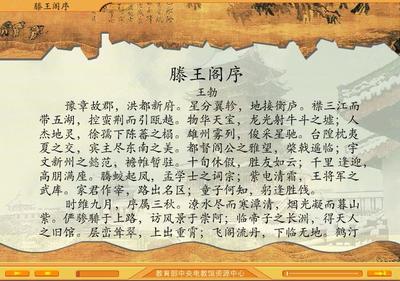 滕王阁序
滕王阁序
王勃
豫章故郡，洪都新府。星分翼轸，地接衡庐。襟三江而
带五湖，控蛮荆而引瓯越。物华天宝，龙光射牛斗之墟；人
杰地灵，徐孺下陈蕃之榻。雄州雾列，俊采星驰。台隍枕夷
夏之交，宾主尽东南之美。都督阎公之雅望，棨戟遥临；宇
文新州之懿范，襜帷暂驻。十旬休假，胜友如云；千里逢迎，
高朋满座。腾蛟起凤，孟学士之词宗；紫电清霜，王将军之
武库。家君作宰，路出名区；童子何知，躬逢胜饯。
时维九月，序属三秋。潦水尽而寒潭清，烟光凝而暮山
紫。俨骖騑于上路，访风景于崇阿；临帝子之长洲，得天人
之旧馆。层峦耸翠，上出重霄；飞阁流丹，下临无地。鹤汀
教育部中央电教馆资源中心